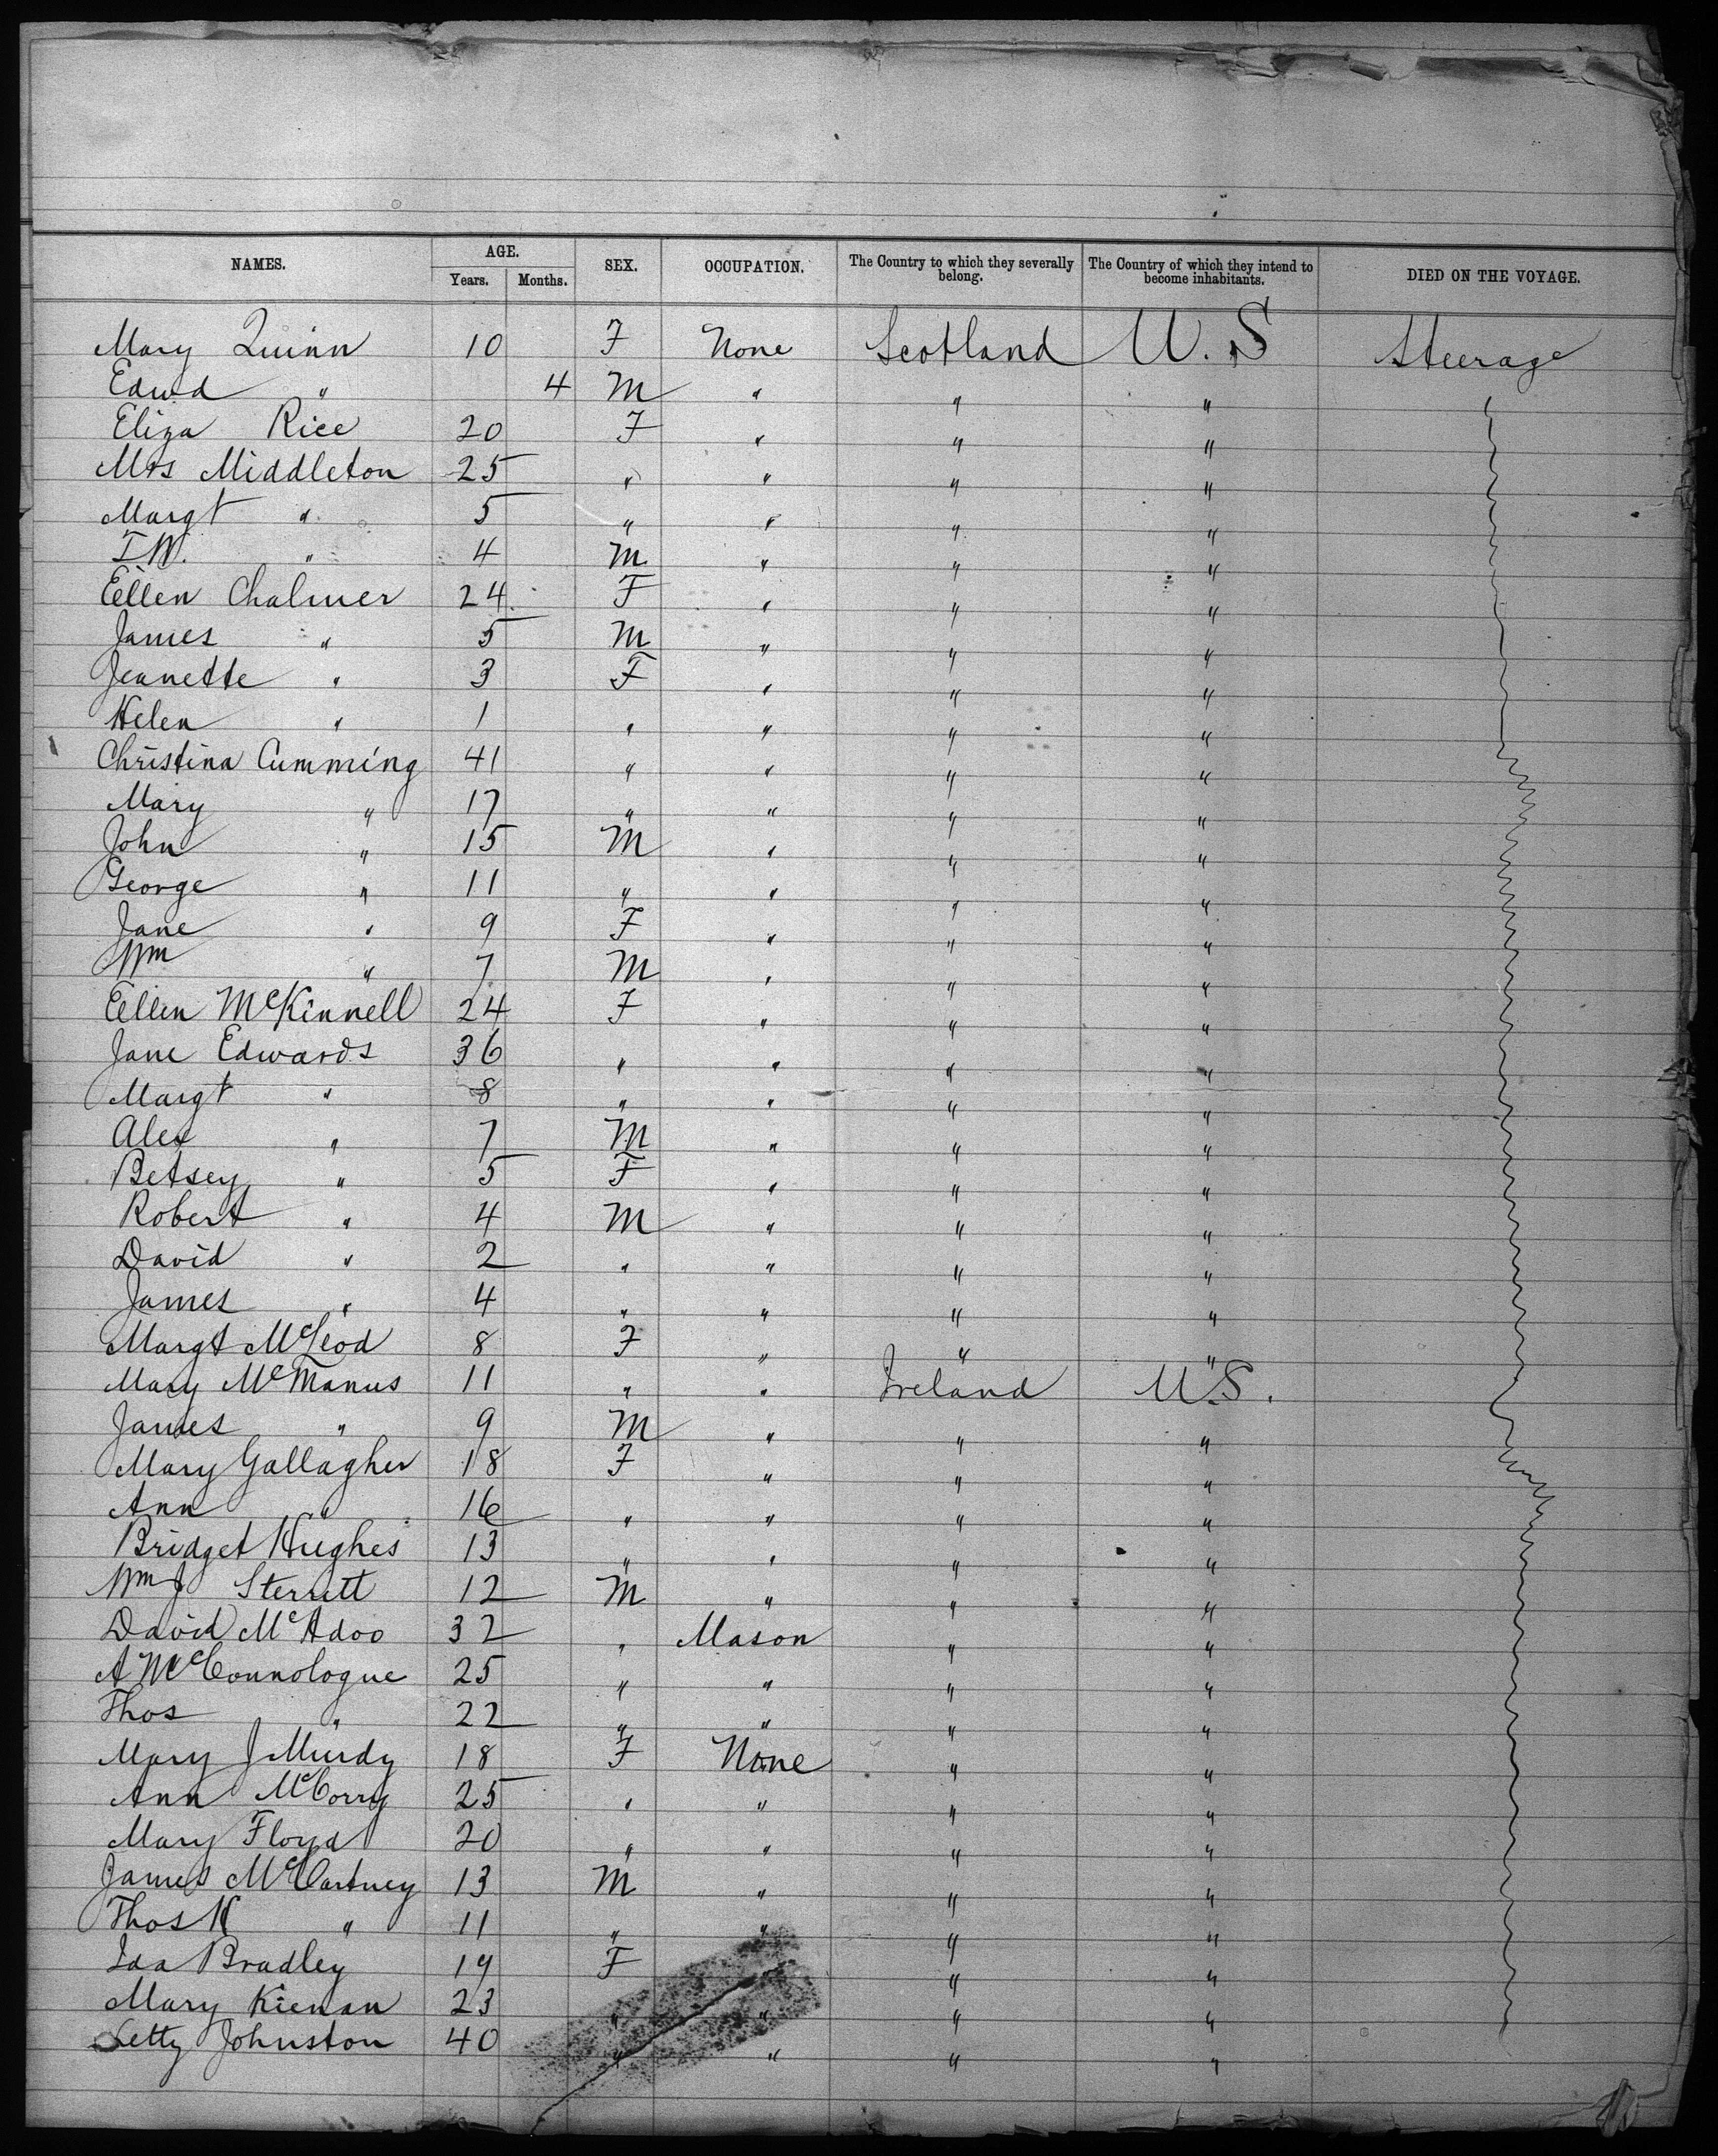 NAMES. AGE. Years. Months. SEX. OCCUPATION. The Country to which they severally belong. The Country of which they intend to become inhabitants. DIED ON THE VOYAGE.
Mary Quinn 10 F None Scotland U.S Steerage
Edwd " 4 M " " "
Eliza Rice 20 F " " "
Mrs Middleton 25 " " " "
Margt " 5 " " " "
I W. " 4 M " " "
Ellen Chalmer 24 F " " "
James " 5 M " " "
Jeanette " 3 F " " "
Helen " 1 " " " "
Christina Cumming 41 " " " "
Mary " 17 " " " "
John " 15 M " " "
George " 11 " " " "
Jane " 9 F " " "
Wm " 7 M " " "
Ellen McKinnell 24 F " " "
Jane Edwards 36 " " " "
Margt " 8 " " " "
Alex " 7 M " " "
Betsey " 5 F " " "
Robert " 4 M " " "
David " 2 " " " "
James " 4 " " " "
Margt McLeod 8 F " " "
Mary McManus 11 " " Ireland U.S.
James " 9 M " " "
Mary Gallagher 18 F " " "
Ann " 16 " " " "
Bridget Hughes 13 " " " "
Wm J Sterrett 12 M " " "
David McAdoo 32 " Mason " "
A McConnologue 25 " " " "
Thos " 22 " " " "
Mary J Murdy 18 F None " "
Ann McCorry 25 " " " "
Mary Floyd 20 " " " "
James McCartney 13 M " " "
Thos H " 11 " " " "
Ida Bradley 19 F " " "
Mary Kienan 23 " " " "
Letty Johnston 40 " " " "